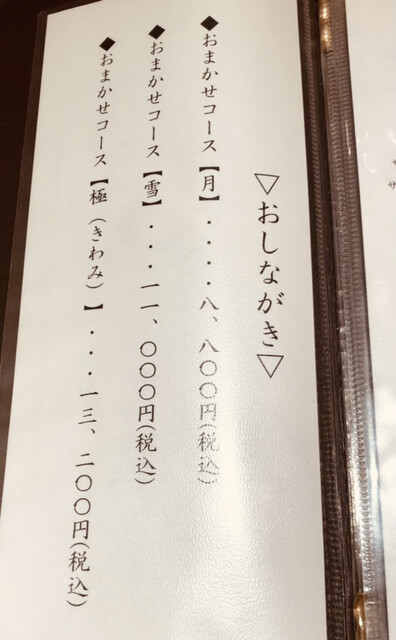 ▽おしながき▽
◆おまかせコース【月】・・・・八、八〇〇円(税込)
◆おまかせコース【雪】・・・一一、〇〇〇円(税込)
◆おまかせコース【極(きわみ)】・・・一三、二〇〇円(税込)